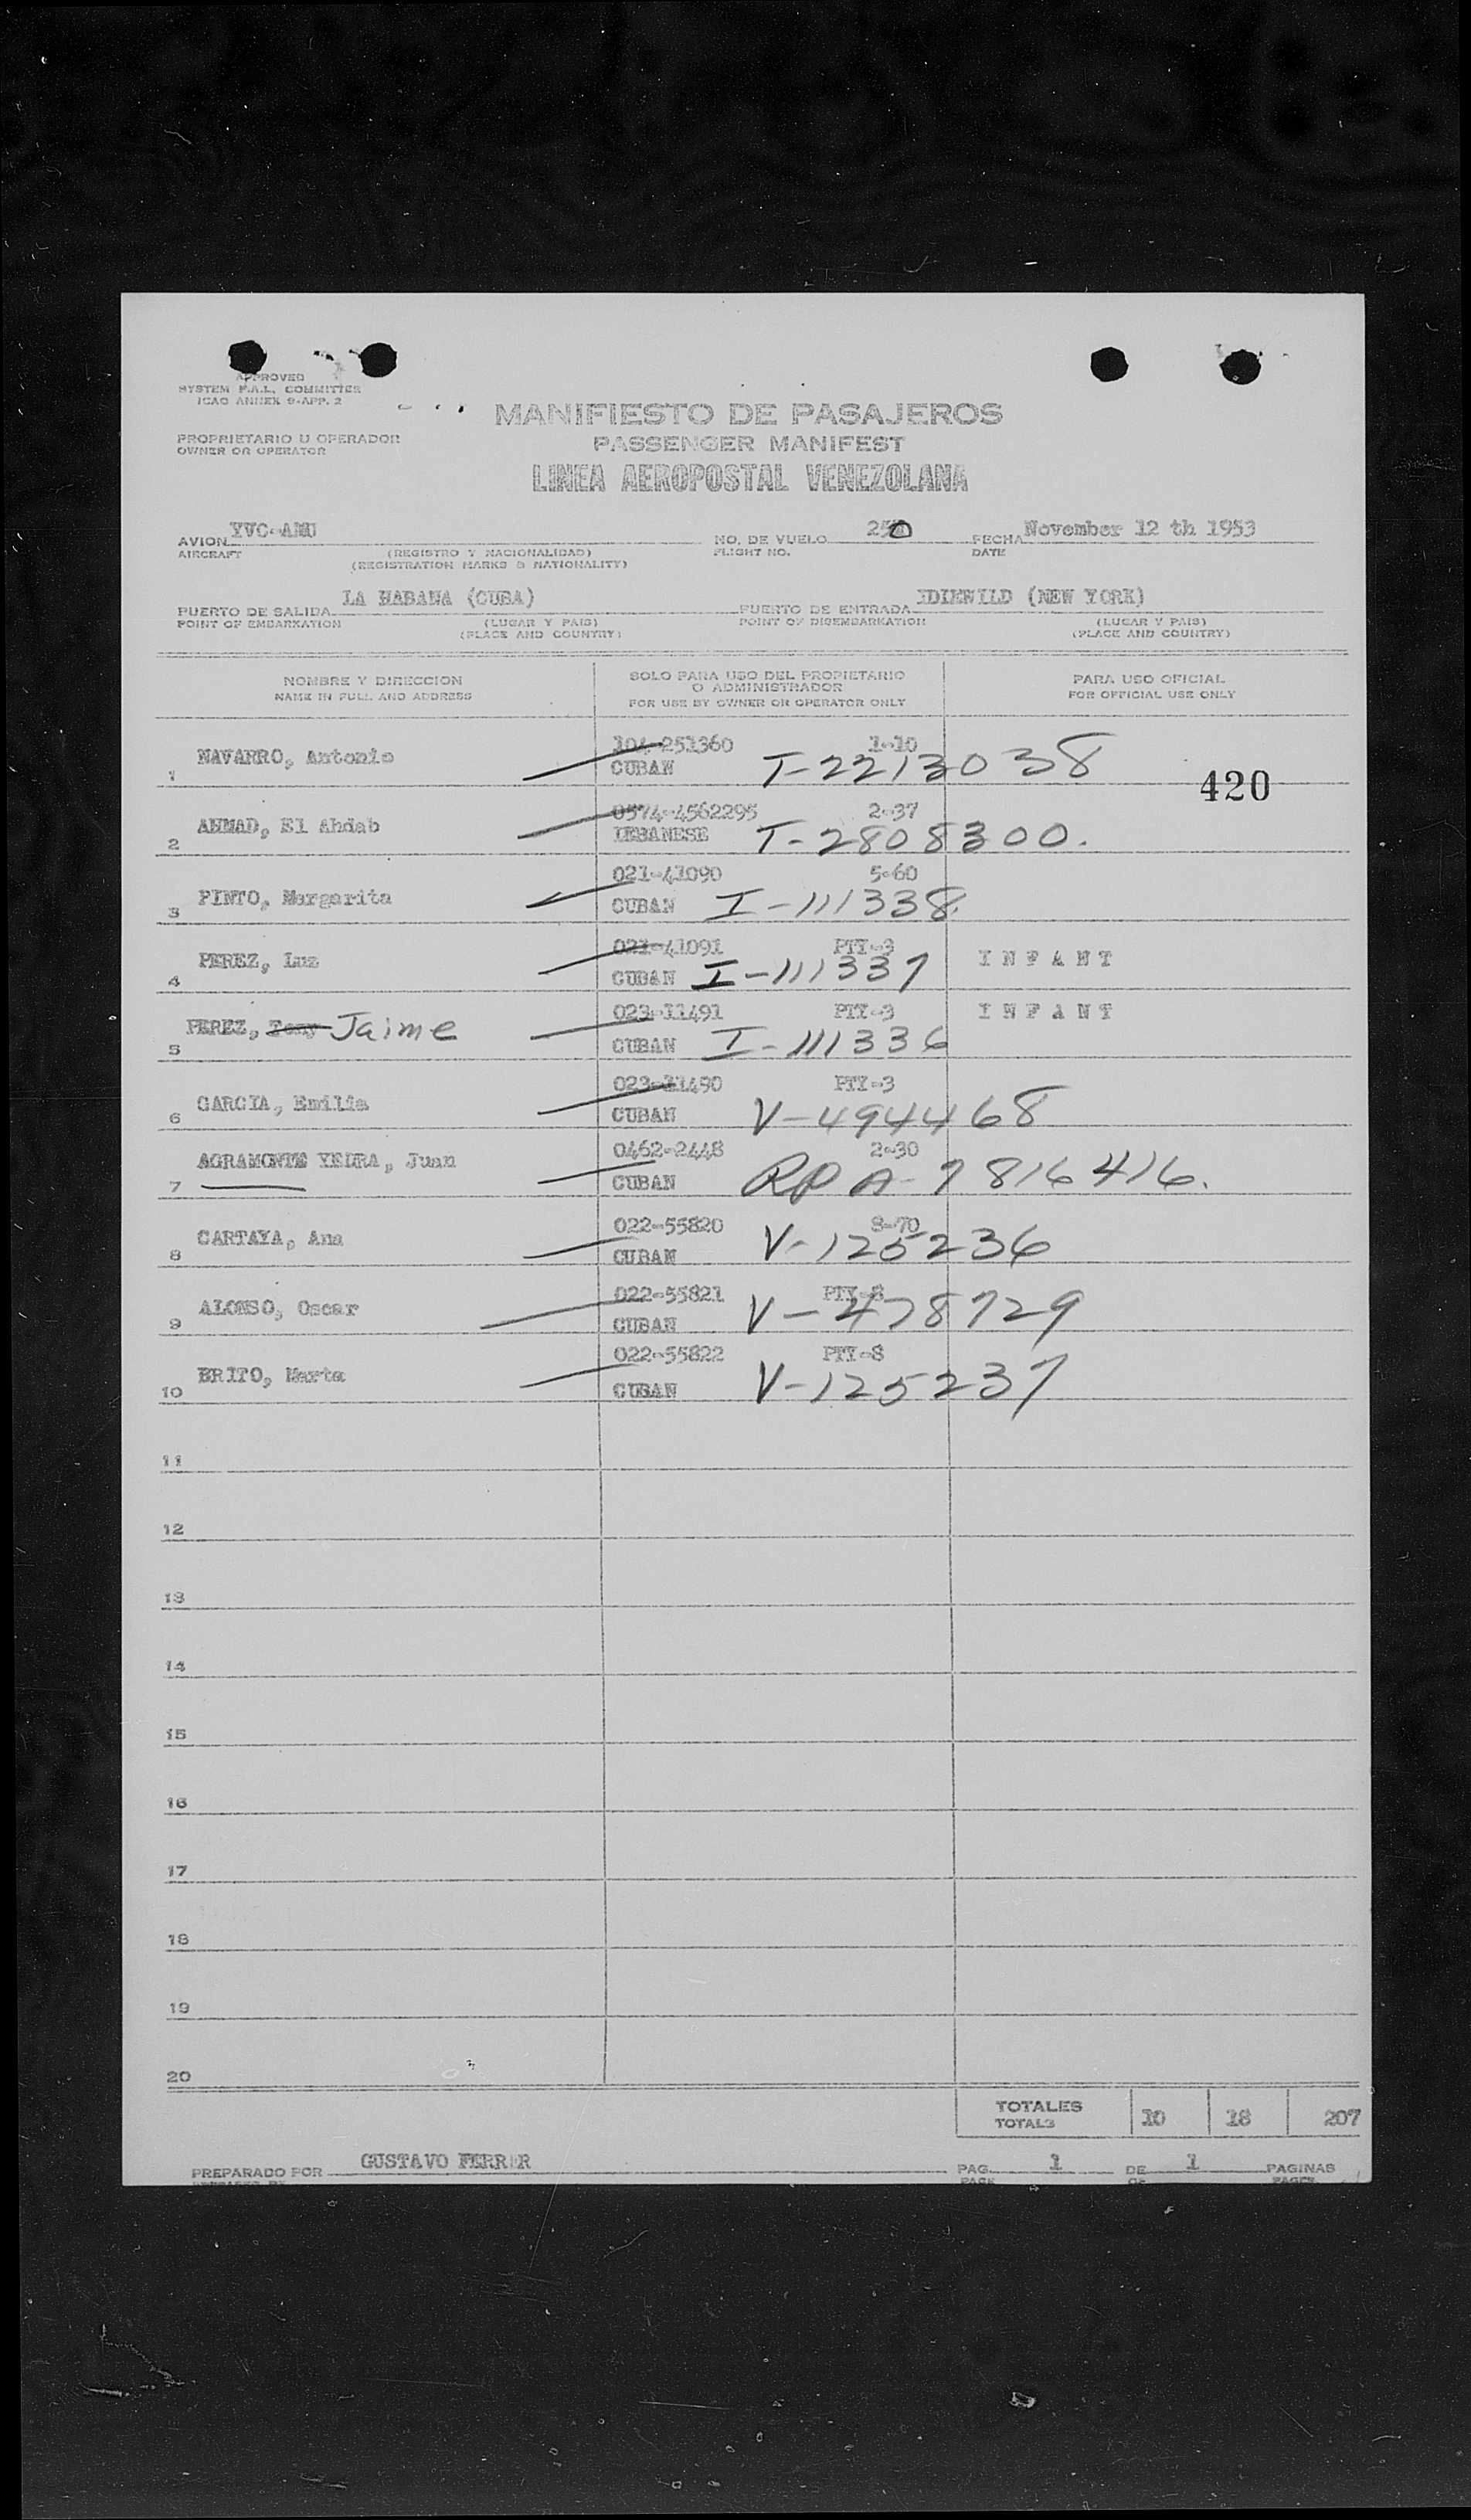 APPROVED
SYSTEM F.A.L. COMMITTEE
ICAO ANNEX 9-APP. 2
MANIFIESTO DE PASAJEROS
PROPRIETARIO U OPERADOR
OWNER OR OPERATOR
PASSENGER MANIFEST
LINEA AEROPOSTAL VENEZOLANA
AVION YVC-AMU NO. DE VUELO 250 FECHA November 12 th 1953
AIRCRAFT (REGISTRO Y NACIONALIDAD) FLIGHT NO. DATE
(REGISTRATION MARKS & NATIONALITY)
PUERTO DE SALIDA LA HABANA (CUBA) PUERTO DE ENTRADA IDIEWILD (NEW YORK)
POINT OF EMBARKATION (LUGAR Y PAIS) POINT OF DISEMBARKATION (LUGAR Y PAIS)
(PLACE AND COUNTRY) (PLACE AND COUNTRY)
NOMBRE Y DIRECCION
NAME IN FULL AND ADDRESS
SOLO PARA USO DEL PROPIETARIO
O ADMINISTRADOR
FOR USE BY OWNER OR OPERATOR ONLY
PARA USO OFICIAL
FOR OFFICIAL USE ONLY
104-251360 1-10
1 NAVARRO, Antonio CUBAN T-2213038
420
0574-4562295 2-37
2 AHMAD, El Ahdab LEBANESE T-2808300.
021-41090 5-60
3 PINTO, Margarita CUBAN I-111338
021-41091 PTY-3
4 PEREZ, Luz CUBAN I-111337 INFANT
023-11491 PTY-3 INFANT
5 PEREZ, Tony Jaime CUBAN I-111336
023-11490 PTY-3
6 GARCIA, Emilia CUBAN V-494468
0462-2448 2-30
7 AGRAMONTE YEDRA, Juan CUBAN RPA-7816416.
022-55820 8-70
8 CARTAYA, Ana CUBAN V-125236
022-55821 PTY-8
9 ALONSO, Oscar CUBAN V-478729
022-55822 PTY-8
10 BRITO, Marta CUBAN V-125237
11
12
13
14
15
16
17
18
19
20
TOTALES 10 18 207
TOTALS
PREPARADO POR GUSTAVO FERRER PAG. 1 DE 1 PAGINAS
PREPARED BY PAGE OF PAGES